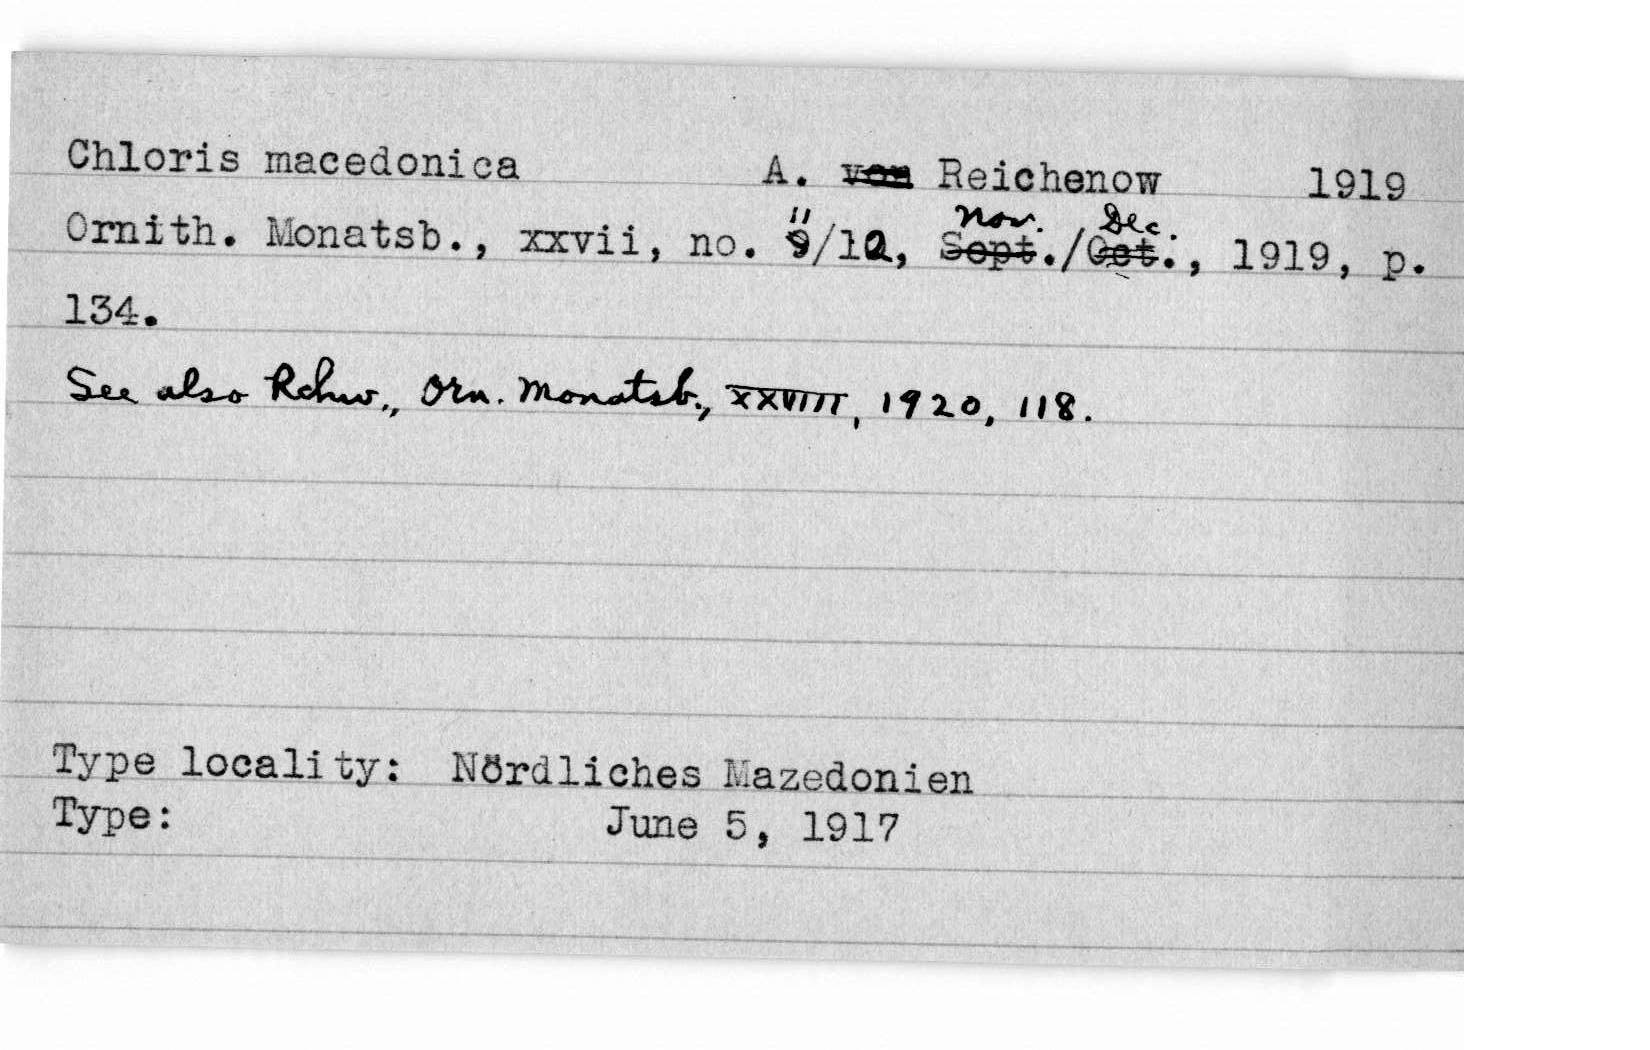 Chloris macedonica A. von Reichenow 1919
Nov. Dec.
Ornith. Monatsb., xxvii, no. 11 9/12, Sept./Oct., 1919, p.
134.
See also Rchw., Orn. Monatsb., XXVIII, 1920, 118.
Type locality: Nördliches Mazedonien
Type: June 5, 1917